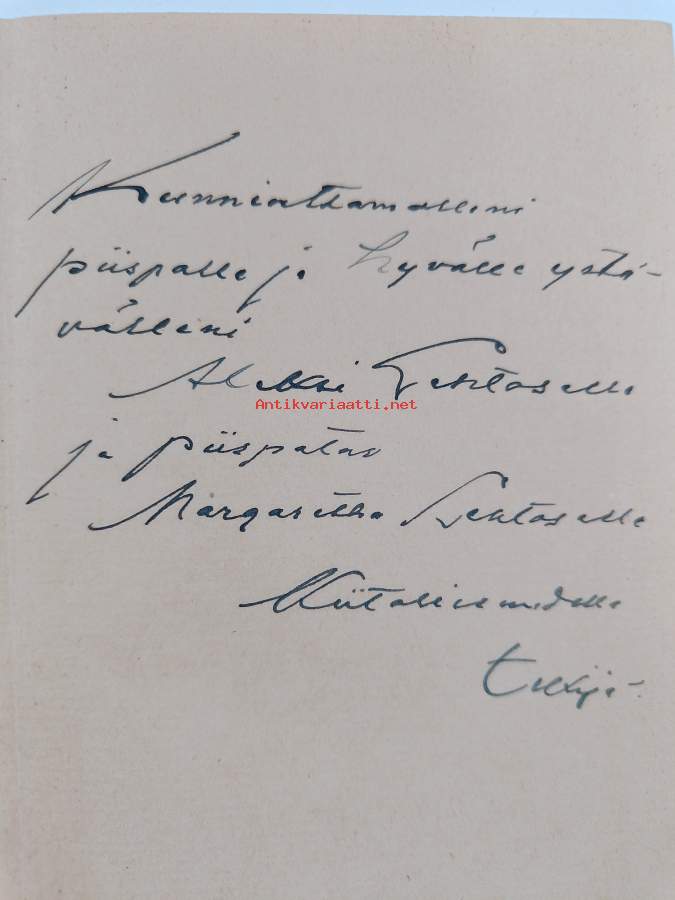 Kunnioittamalleni
piispalle ja hyvälle ystä-
välleni
Aleksi Lehtoselle
Antikvariaatti.net
ja piispatar
Margaretha Lehtoselle
Kiitollisuudella
tekijä